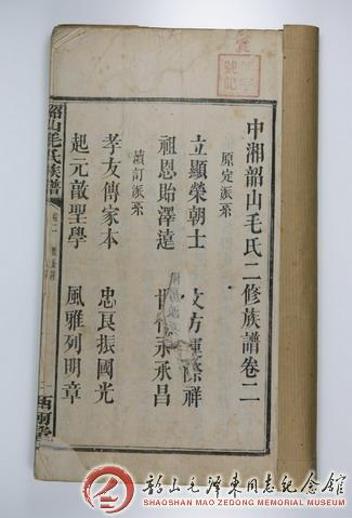 中湘韶山毛氏二修族譜卷二
原定派系
立顯榮朝士 文方運際祥
祖恩貽澤遠 世代永承昌
續訂派系
孝友傳家本 忠良振國光
起元敦聖學 風雅列明章
韶山毛氏族譜
卷二
西河堂
韶山毛泽东同志纪念馆
SHAOSHAN MAO ZEDONG MEMORIAL MUSEUM